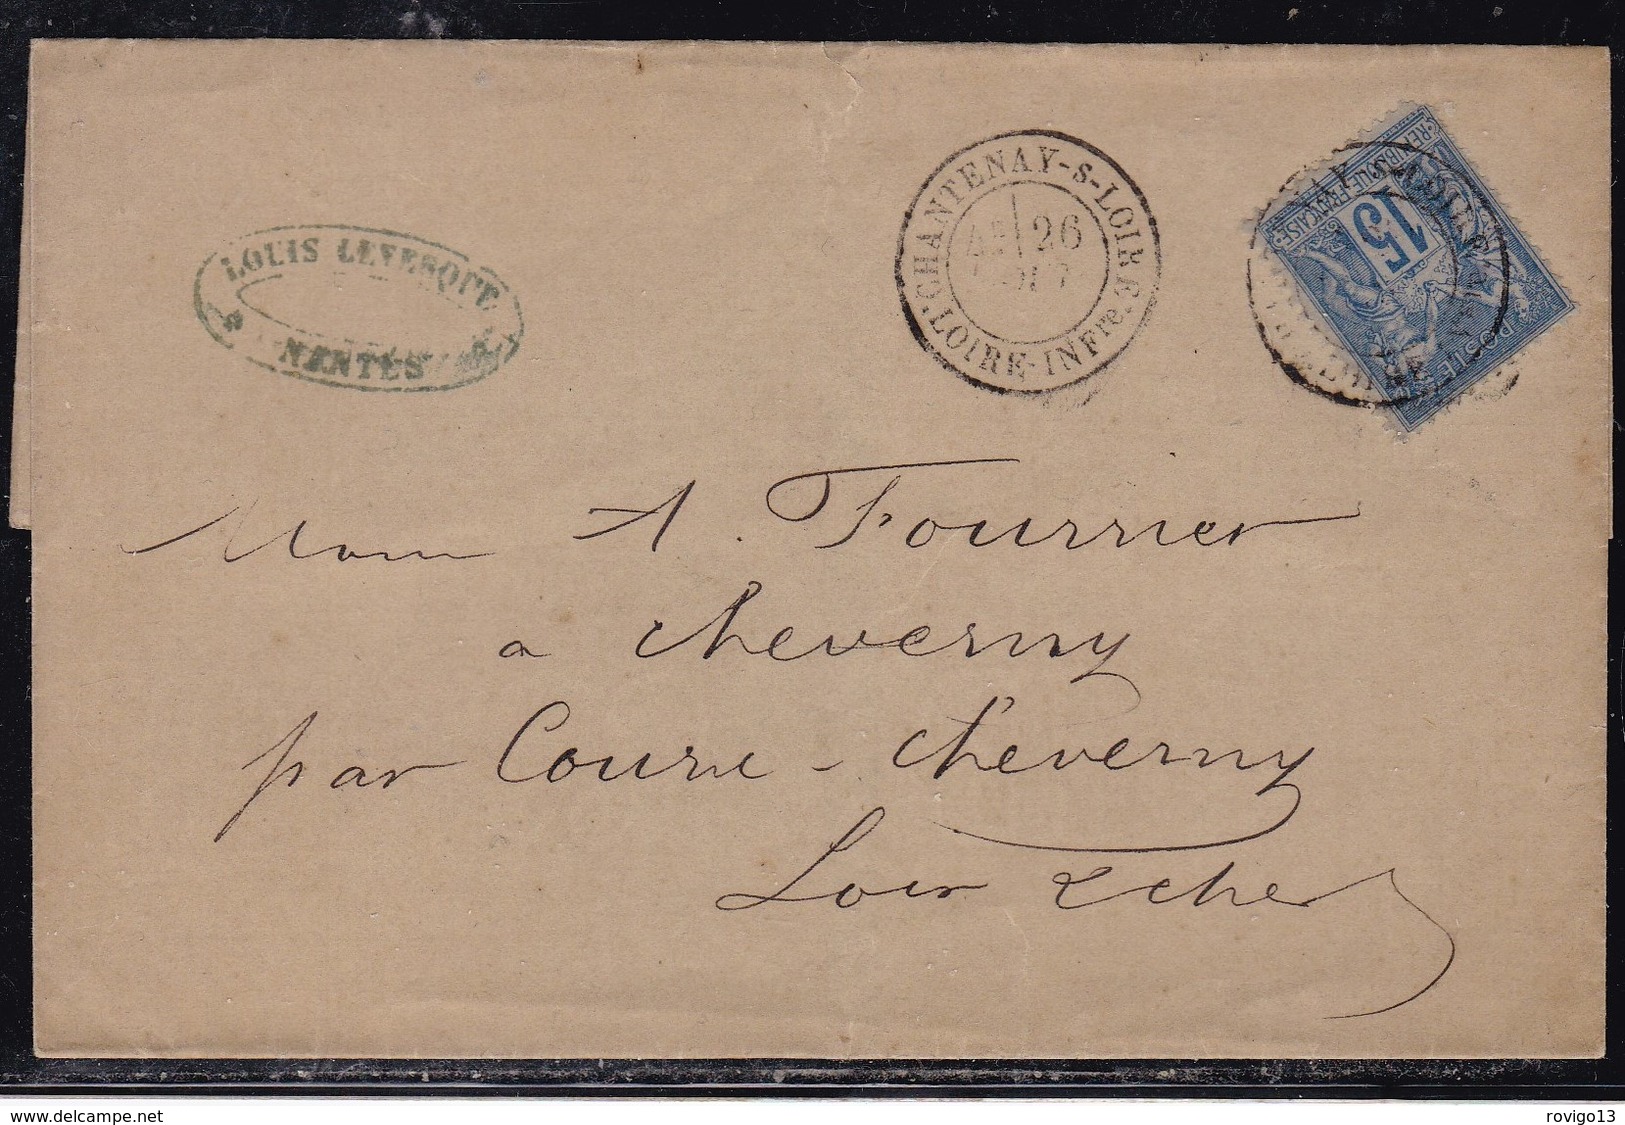 LOUIS LEVESQUE
NANTES
CHANTENAY-S-LOIRE
26
LOIRE-INFre.
REPUBLIQUE FRANÇAISE
15
POSTE
A. Fourrier
a Cheverny
par Cour - Cheverny
Loir & Cher
www.delcampe.net
rovigo13